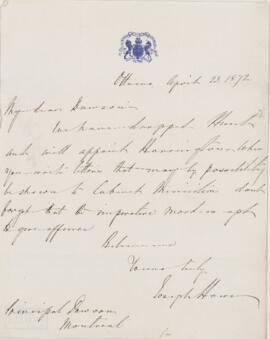 Ottawa April 23. 1872
My dear Dawson
We have dropped Hunt
and will appoint Harrington. When
you write letters that may by possibility
be shown to Cabinet Ministers don't
forget that the imperative mood is apt
to give offence
Believe me
Yours truly
Joseph Howe
Principal Dawson
Montreal